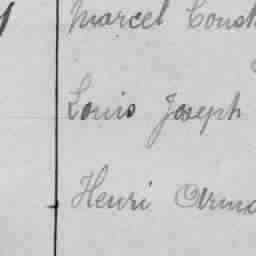 Marcel Const
Louis Joseph
Henri Arma